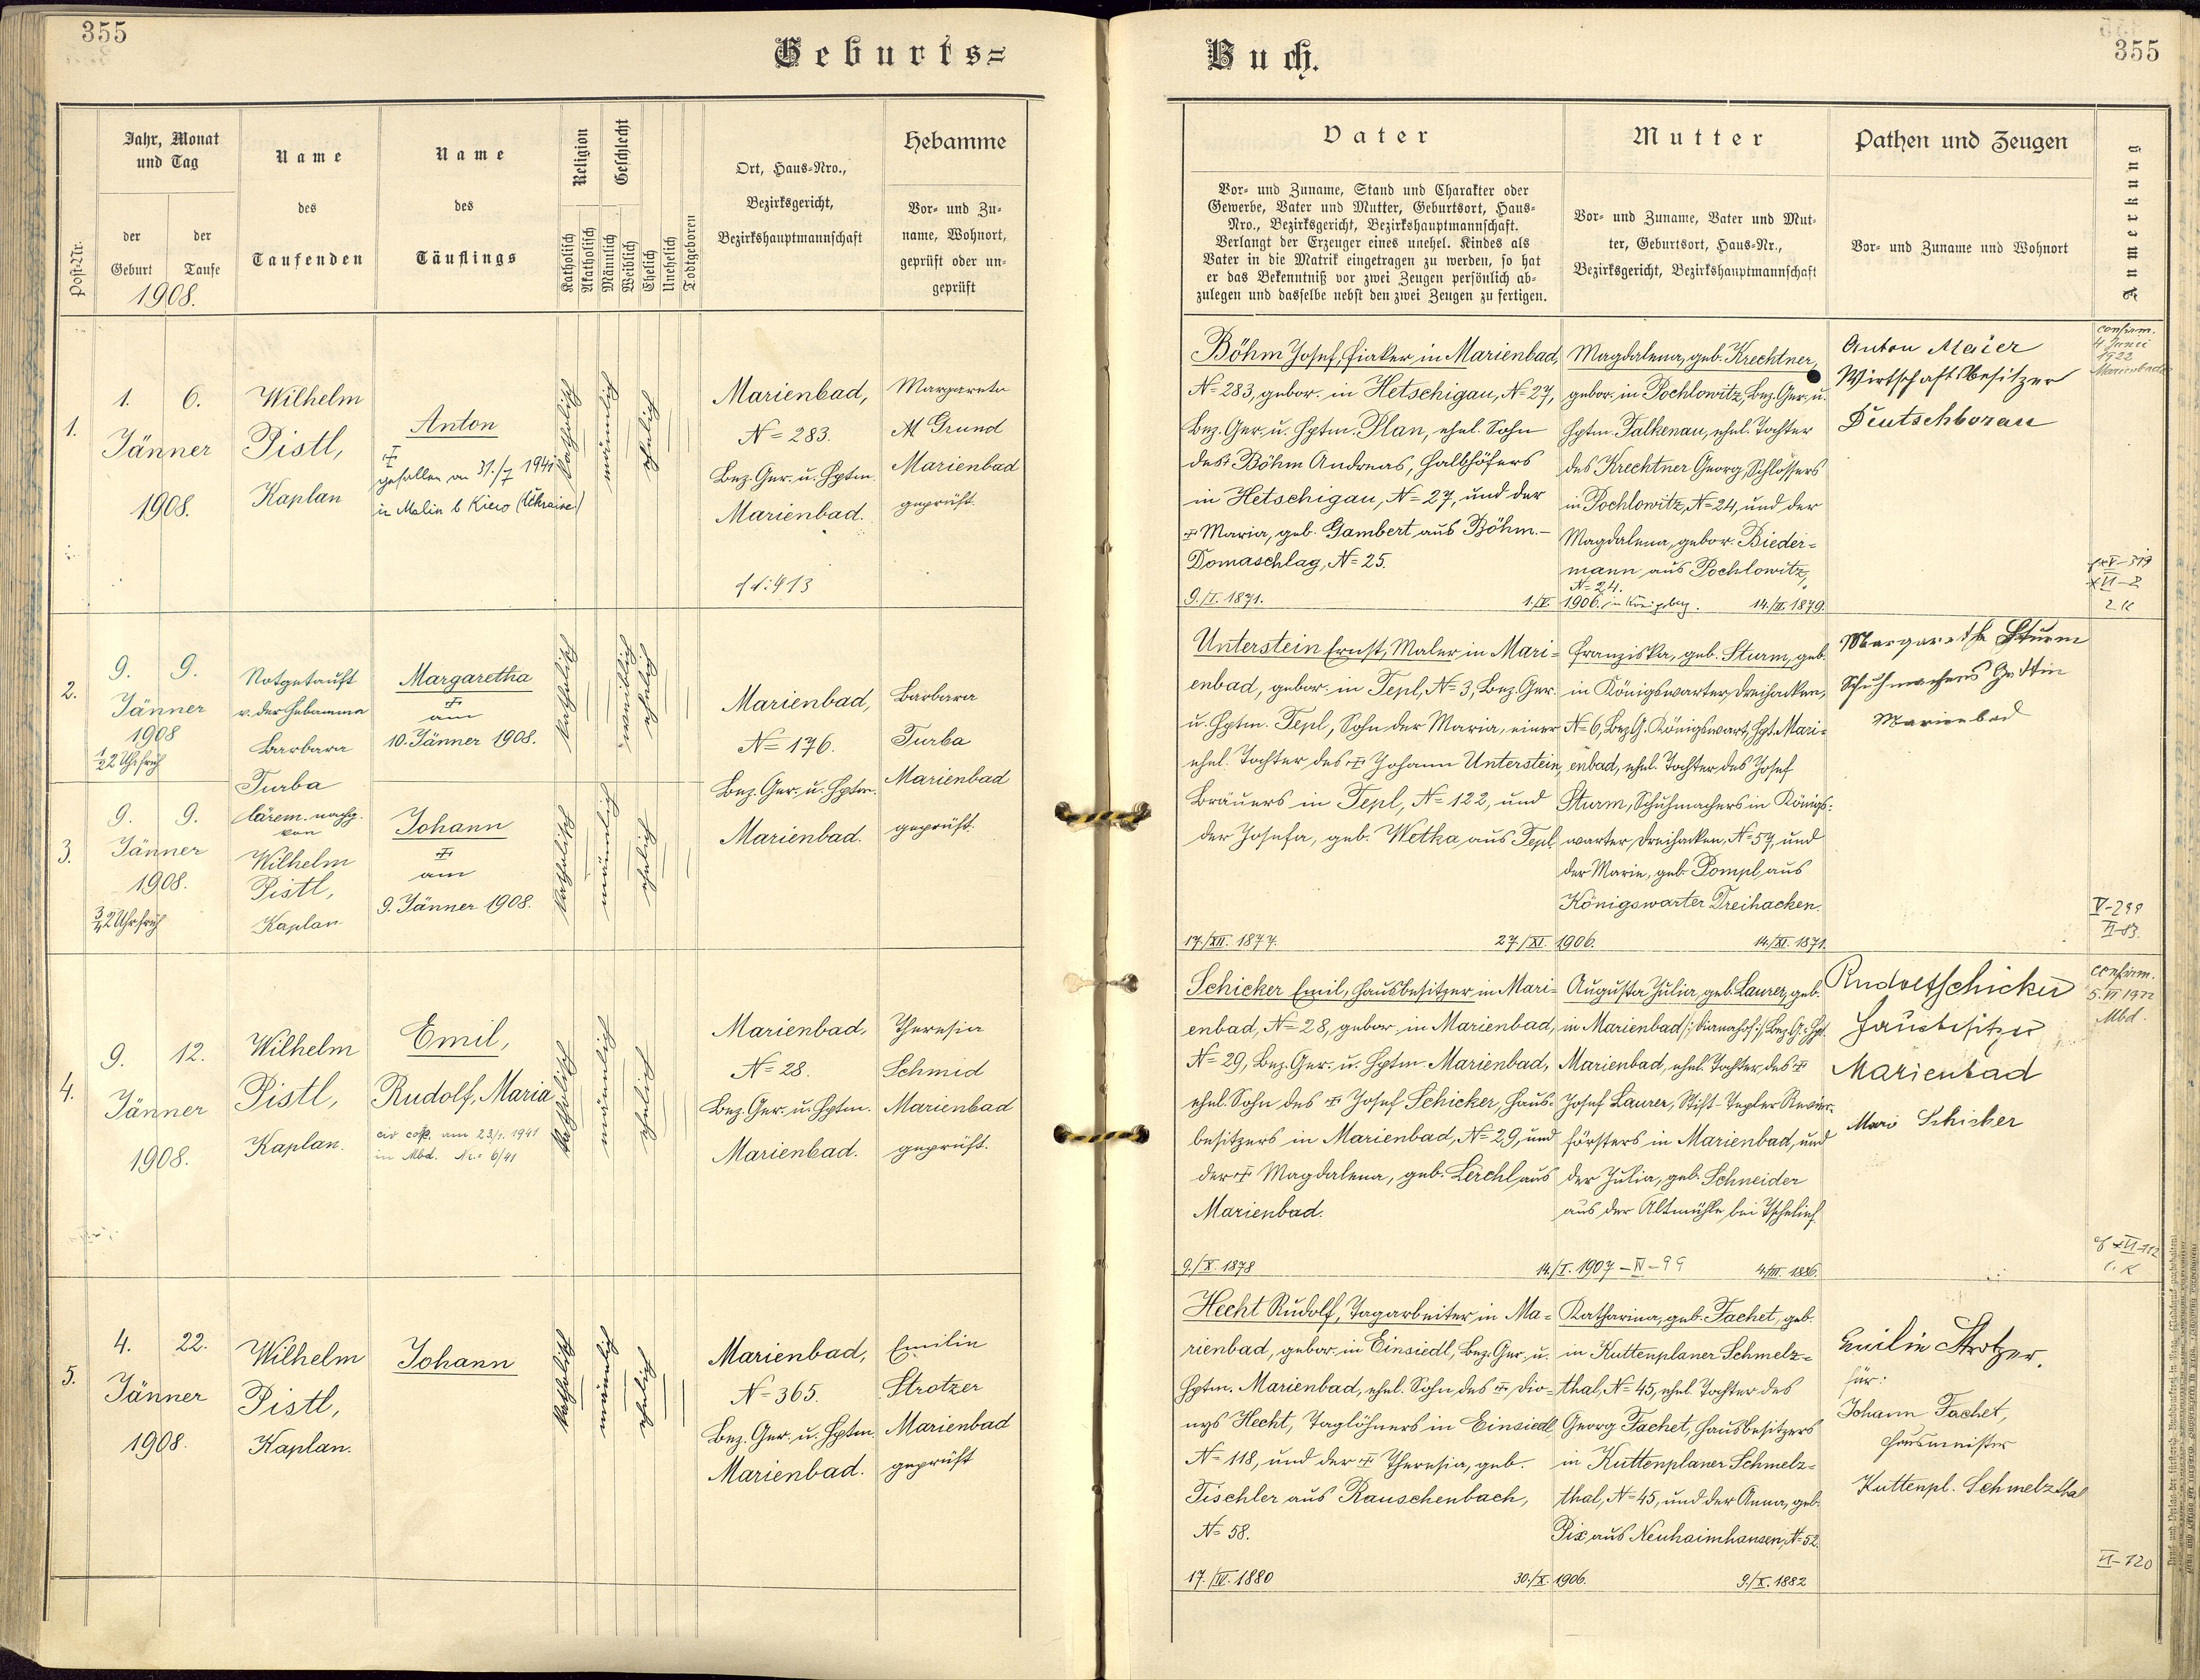 355
Geburts=
Jahr, Monat
und Tag
Name
Name
Religion
Geschlecht
Ort, Haus-Nro.,
Bezirksgericht,
Bezirkshauptmannschaft
Hebamme
Post-Nr.
der
Geburt
der
Taufe
1908.
des
Taufenden
des
Täuflings
Katholisch
Akatholisch
Männlich
Weiblich
Ehelich
Unehelich
Todtgeboren
Vor- und Zu-
name, Wohnort,
geprüft oder un-
geprüft
1.
1. 6.
Jänner
1908.
Wilhelm
Pistl,
Kaplan
Anton
gefallen am 31./7 1941
in Malin b Kiew (Ukraine)
katholisch
männlich
ehelich
Marienbad,
N= 283.
Bez. Ger. u. Hptm.
Marienbad.
Margareta
M Grund
Marienbad
geprüft.
2.
9. 9.
Jänner
1908
1/2 2 Uhr früh
Notgetauft
v. der Hebamme
Barbara
Turba
Margaretha
am
10. Jänner 1908.
katholisch
weiblich
ehelich
Marienbad,
N= 176.
Bez. Ger. u. Hptm.
Marienbad.
Barbara
Turba
Marienbad
geprüft.
3.
9. 9.
Jänner
1908.
3/4 2 Uhr früh
von
Wilhelm
Pistl,
Kaplan
Johann
am
9. Jänner 1908.
katholisch
männlich
ehelich
4.
9. 12.
Jänner
1908.
Wilhelm
Pistl,
Kaplan.
Emil,
Rudolf, Maria
civ cop. am 23/1. 1941
in Mbd. Nr. 6/41
katholisch
männlich
ehelich
Marienbad,
N= 28.
Bez. Ger. u. Hptm.
Marienbad.
Theresia
Schmid
Marienbad
geprüft.
5.
4. 22.
Jänner
1908.
Wilhelm
Pistl,
Kaplan.
Johann
katholisch
männlich
ehelich
Marienbad,
N= 365.
Bez. Ger. u. Hptm.
Marienbad.
Emilie
Strotzer
Marienbad
geprüft
Buch.
355
Vater
Mutter
Pathen und Zeugen
Anmerkung
Vor- und Zuname, Stand und Charakter oder
Gewerbe, Vater und Mutter, Geburtsort, Haus-
Nro., Bezirksgericht, Bezirkshauptmannschaft.
Verlangt der Erzeuger eines unehel. Kindes als
Vater in die Matrik eingetragen zu werden, so hat
er das Bekenntniß vor zwei Zeugen persönlich ab-
zulegen und dasselbe nebst den zwei Zeugen zu fertigen.
Vor- und Zuname, Vater und Mut-
ter, Geburtsort, Haus-Nr.,
Bezirksgericht, Bezirkshauptmannschaft
Vor- und Zuname und Wohnort
Böhm Josef, Fiaker in Marienbad,
N= 283, gebor. in Hetschigau, N= 27,
Bez. Ger. u. Hptm. Plan, ehel. Sohn
des Böhm Andreas, Halbhöfers
in Hetschigau, N= 27, und der
Maria, geb. Gambert aus Böhm.-
Domaschlag, N= 25.
9./I. 1871.
1./V. 1906.
Magdalena, geb. Krechtner,
gebor. in Pochlowitz, Bez. Ger. u.
Hptm. Falkenau, ehel. Tochter
des Krechtner Georg, Schlossers
in Pochlowitz, N= 24, und der
Magdalena, gebor. Bieder-
mann aus Pochlowitz,
N= 24.
14./II. 1879.
Anton Maier
Wirtschaftsbesitzer
Deutschborau
confirm.
4 Junii
1922
Marienbad
Unterstein Ernst, Maler in Mari-
enbad, gebor. in Tepl, N= 3, Bez. Ger.
u. Hptm. Tepl, Sohn der Maria, einer
ehel. Tochter des Johann Unterstein,
Bräuers in Tepl, N= 122, und
der Josefa, geb. Wetka aus Tepl
17./XII. 1877.
27./XI. 1906.
Franziska, geb. Sturm, geb.
in Königswarter Dreihacken,
N= 6, Bez. G. Königswart, Hpt. Mari-
enbad, ehel. Tochter des Josef
Sturm, Schuhmachers in Königs-
warter Dreihacken, N= 57, und
der Marie, geb. Pompl aus
Königswarter Dreihacken.
14./XI. 1871.
Margarethe Sturm
Schuhmachers Gattin
Marienbad
V-299
Schicker Emil, Hausbesitzer in Mari-
enbad, N= 28, gebor. in Marienbad,
N= 29, Bez. Ger. u. Hptm. Marienbad,
ehel. Sohn des Josef Schicker, Haus-
besitzers in Marienbad, N= 29, und
der Magdalena, geb. Lerchl aus
Marienbad.
9./X. 1878
14./I. 1907
Augusta Julia, geb. Laurer, geb.
in Marienbad /: Dianahof :/, Bez. G. Hpt.
Marienbad, ehel. Tochter des
Josef Laurer, Stift-Tepler Revier-
försters in Marienbad, und
der Julia, geb. Schneider
aus der Altmühle bei Tschelief.
4./III. 1886.
Rudolf Schicker
Hausbesitzer
Marienbad
Marie Schicker
confirm.
5. VI 1922
Mbd.
Hecht Rudolf, Tagarbeiter in Ma-
rienbad, gebor. in Einsiedl, Bez. Ger. u.
Hptm. Marienbad, ehel. Sohn des Dio-
nys Hecht, Taglöhners in Einsiedl
N= 118, und der Theresia, geb.
Tischler aus Rauschenbach,
N= 58.
17./IV. 1880
30./X. 1906.
Katharina, geb. Fachet, geb.
in Kuttenplaner Schmelz-
thal, N= 45, ehel. Tochter des
Georg Fachet, Hausbesitzers
in Kuttenplaner Schmelz-
thal, N= 45, und der Anna, geb.
Pix aus Neuhaimhausen, N= 52.
9./X. 1882
Emilie Strotzer.
für:
Johann Fachet,
Hausmeister
Kuttenpl. Schmelzthal
VI-120